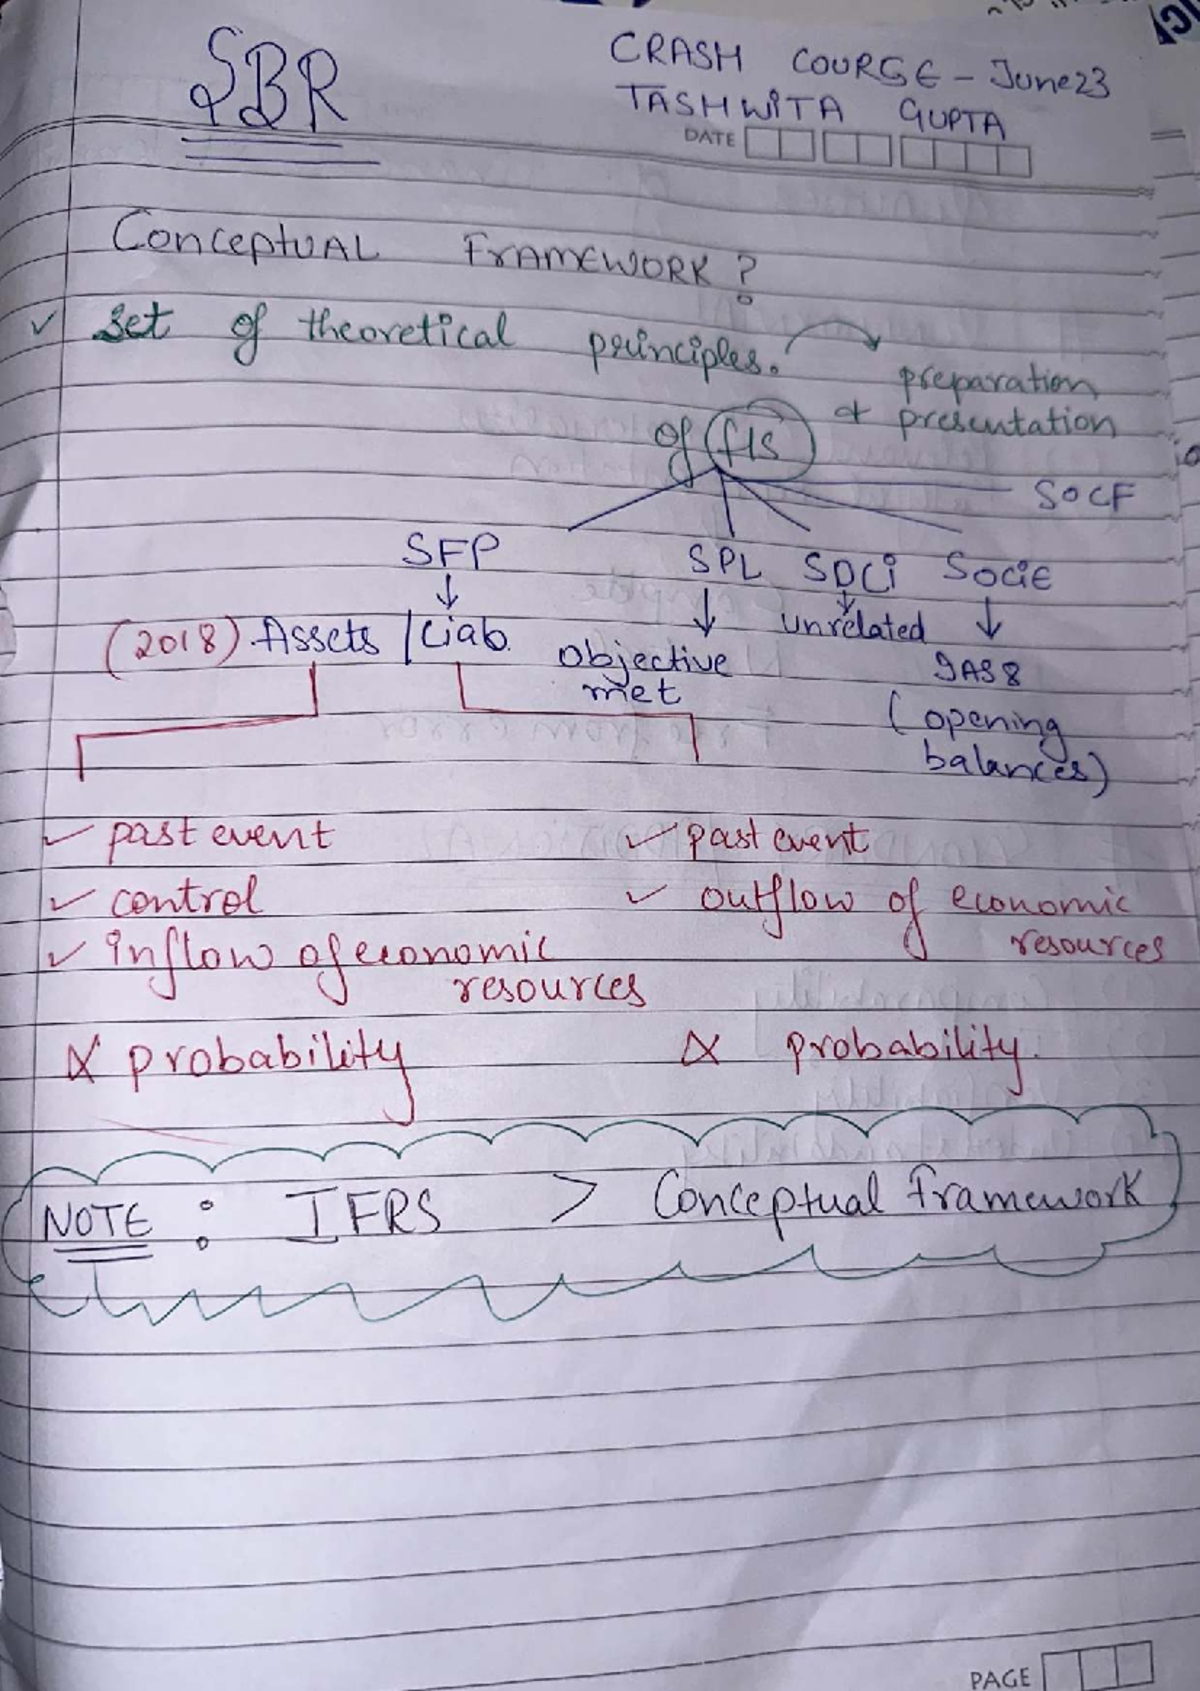 SBR
CRASH COURSE - June23
TASHWITA GUPTA
DATE
CONCEPTUAL FRAMEWORK?
✓ Set of theoretical principles.
preparation
& presentation
of f/s
SOCF
SFP SPL SOCI SOCIE
(2018) Assets / Liab.
Objective met
Unrelated
IAS 8
(opening
balances)
✓ past event
✓ control
✓ inflow of economic
resources
X probability
✓ past event
✓ outflow of economic
resources
X probability.
NOTE : IFRS > Conceptual Framework
PAGE